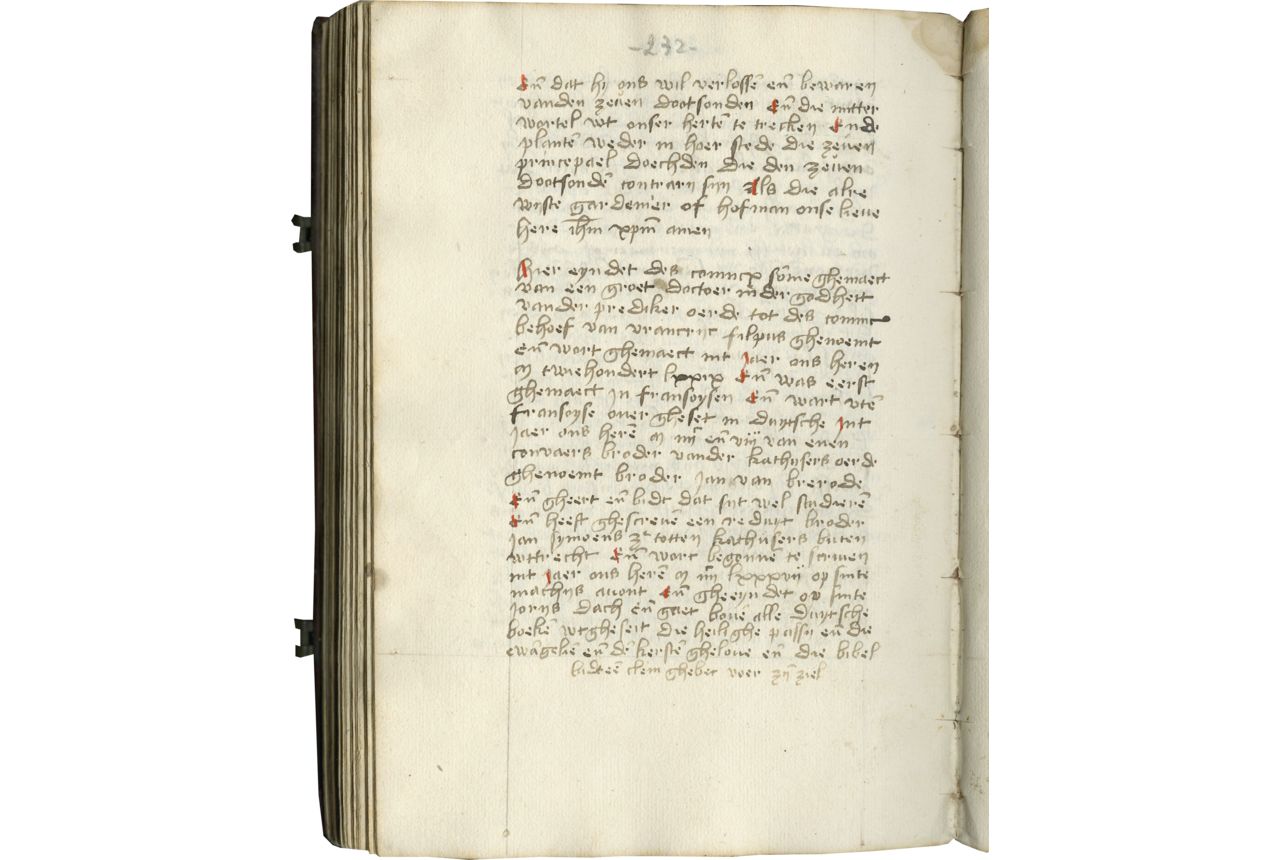 -232-
En̄ dat hi ons wil verlossē en̄ bewaren
vanden zeuen dootsonden En̄ die mitter
wortel wt onser hertē te trecken Ende
plantē weder in hoer stede die zeuen
princepael doechden die den zeuen
dootsondē contrarij sijn Als die alre
wijste gardenier of hofman onse lieue
here ihm̄ xpm̄ amen
Hier eyndet des conincx sōme ghemaect
van een groet doctoer in der godheit
vander prediker oerde tot des coninc
behoef van vrancrijc filpus ghenoemt
En̄ wort ghemaect int Jaer ons heren
m twiehondert lxxix En̄ was eerst
ghemaect in fransoysen En̄ wart vtē
fransoyse ouer gheset in duytsche Int
Jaer ons herē m iiij en̄ viij van enen
convaers broder vander kathusers oerde
ghenoemt broder Jan van brerode
En̄ gheert en̄ bidt dat sijt wel studierē
En̄ heeft ghescreuē een reduyt broder
Jan symoens z totten kathusers buten
wttrecht En̄ wort begonnē te scriuen
int Jaer ons herē m iiij lxxxvij op sinte
mathijs auont En̄ gheeyndet op sinte
Jorijs dach en̄ gaet bouē alle duytsche
boekē wtgheseit die heilighe passij en̄ die
ewāgeliē en̄ dē kerstē gheloue en̄ die bibel
bidt eē clem ghebet voer zijn ziel